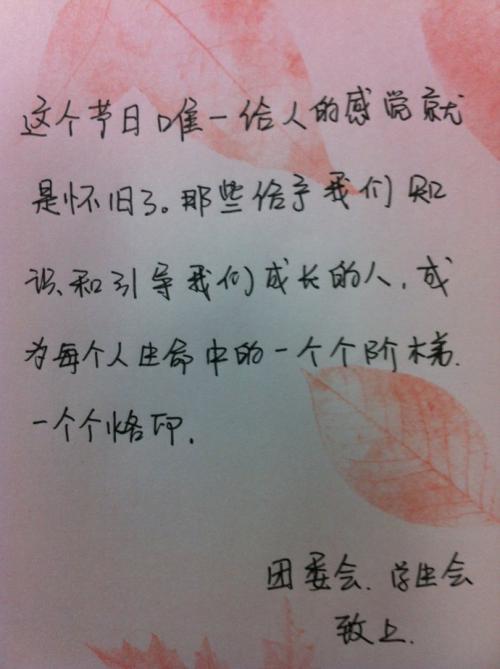 这个节日唯一给人的感觉就
是怀旧了。那些给予我们知
识和引导我们成长的人，成
为每个人生命中的一个个阶梯、
一个个烙印，
团委会、学生会
致上.